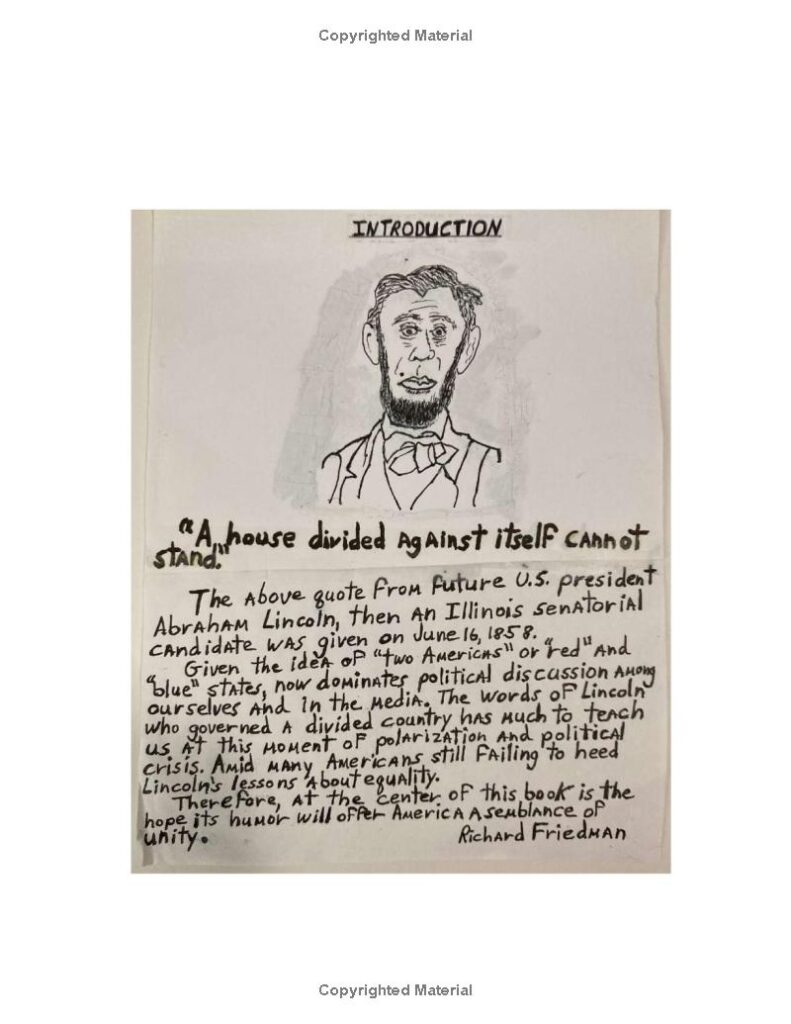 Copyrighted Material
INTRODUCTION
"A house divided against itself cannot
stand."
The above quote from future U.S. president
Abraham Lincoln, then an Illinois senatorial
candidate was given on June 16, 1858.
Given the idea of "two Americas" or "red" and
"blue" states, now dominates political discussion among
ourselves and in the media. The words of Lincoln
who governed a divided country has much to teach
us at this moment of polarization and political
crisis. Amid many Americans still failing to heed
Lincoln's lessons about equality.
Therefore, at the center of this book is the
hope its humor will offer America a semblance of
unity.
Richard Friedman
Copyrighted Material